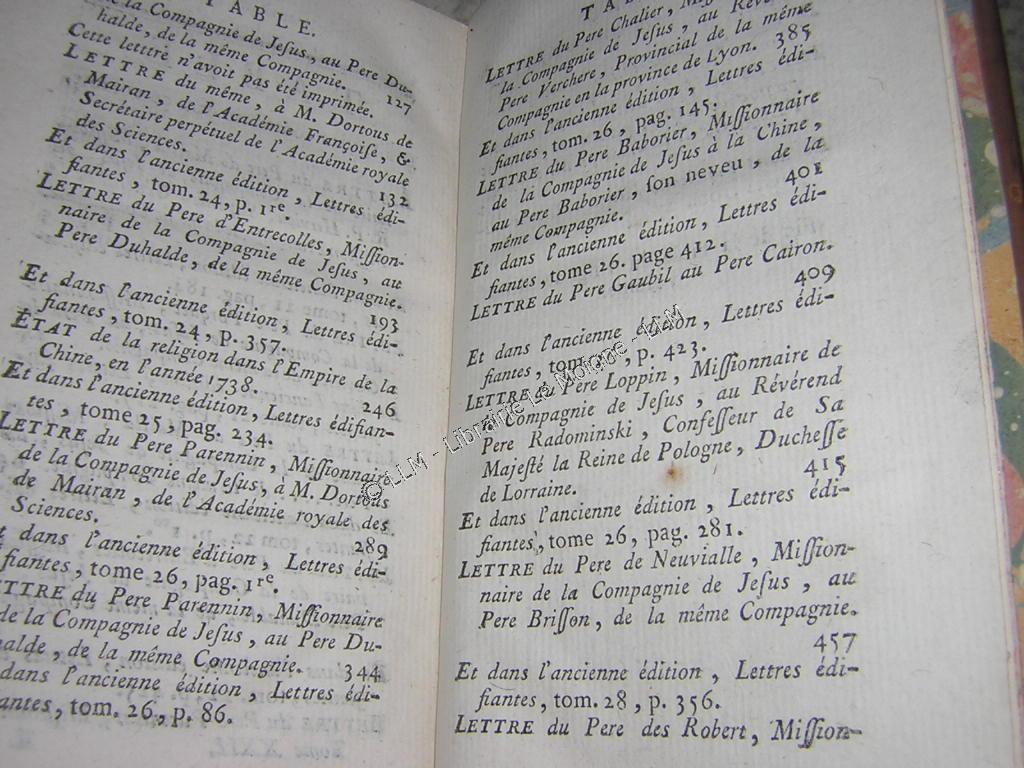 TABLE.
de la Compagnie de Jesus, au Pere Du-
halde, de la même Compagnie. 127
Cette letttre n'avoit pas été imprimée.
LETTRE du même, à M. Dortous de
Mairan, de l'Académie Françoise, &
Secrétaire perpétuel de l'Académie royale
des Sciences. 132
Et dans l'ancienne édition, Lettres édi-
fiantes, tom. 24, p. 1re.
LETTRE du Pere d'Entrecolles, Mission-
naire de la Compagnie de Jesus, au
Pere Duhalde, de la même Compagnie.
193
Et dans l'ancienne édition, Lettres édi-
fiantes, tom. 24, p. 357.
ÉTAT de la religion dans l'Empire de la
Chine, en l'année 1738. 246
Et dans l'ancienne édition, Lettres édifian-
tes, tome 25, pag. 234.
LETTRE du Pere Parennin, Missionnaire
de la Compagnie de Jesus, à M. Dortous
de Mairan, de l'Académie royale des
Sciences. 289
Et dans l'ancienne édition, Lettres édi-
fiantes, tome 26, pag. 1re.
LETTRE du Pere Parennin, Missionnaire
de la Compagnie de Jesus, au Pere Du-
halde, de la même Compagnie. 344
dans l'ancienne édition, Lettres édi-
fiantes, tom. 26, p. 86.
TA
LETTRE du Pere Chalier,
la Compagnie de Jesus, au Révé
Pere Verchere, Provincial de la même
Compagnie en la province de Lyon. 385
Et dans l'ancienne édition, Lettres édi-
fiantes, tom. 26, pag. 145.
LETTRE du Pere Baborier, Missionnaire
de la Compagnie de Jesus à la Chine,
au Pere Baborier, son neveu, de la
même Compagnie. 401
Et dans l'ancienne édition, Lettres édi-
fiantes, tome 26. page 412.
LETTRE du Pere Gaubil au Pere Cairon.
409
Et dans l'ancienne édition, Lettres édi-
fiantes, tom. p. 423.
LETTRE du Pere Loppin, Missionnaire de
la Compagnie de Jesus, au Révérend
Pere Radominski, Confesseur de Sa
Majesté la Reine de Pologne, Duchesse
de Lorraine. 415
Et dans l'ancienne édition, Lettres édi-
fiantes, tome 26, pag. 281.
LETTRE du Pere de Neuvialle, Mission-
naire de la Compagnie de Jesus, au
Pere Brisson, de la même Compagnie.
457
Et dans l'ancienne édition, Lettres édi-
fiantes, tom. 28, p. 356.
LETTRE du Pere des Robert, Mission-
© LLM - Librairie Le Moinne - LLM